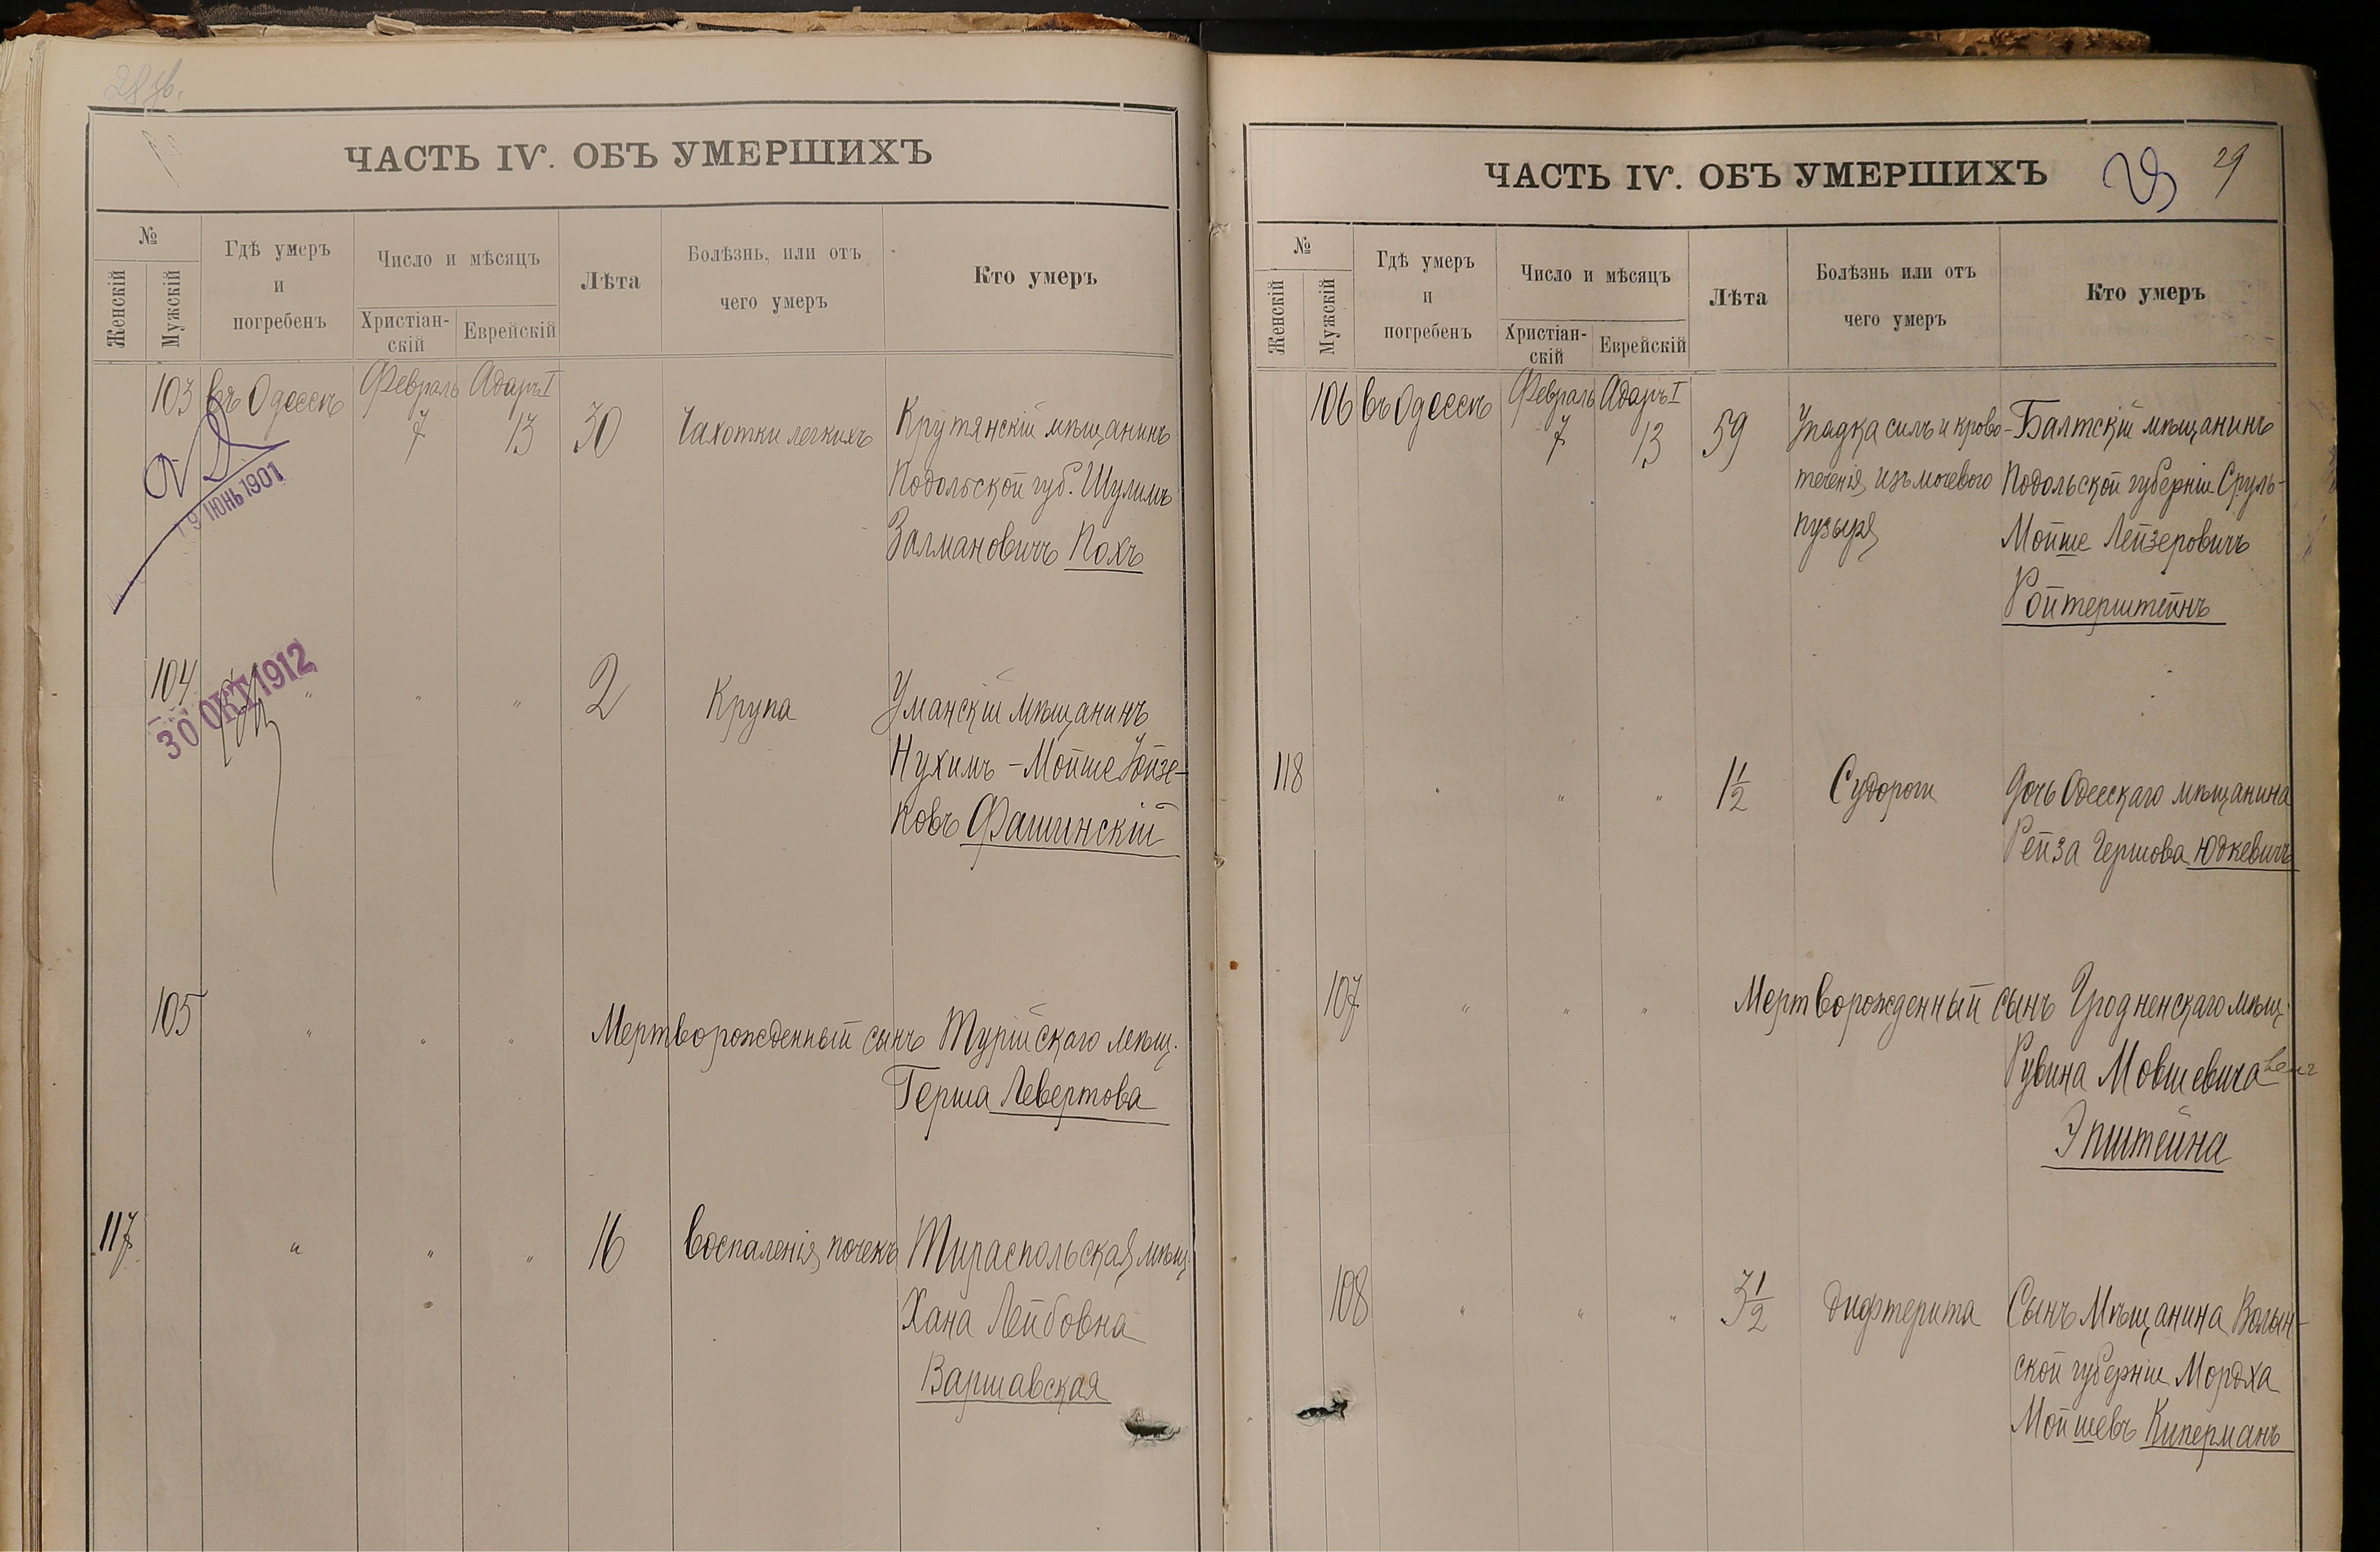 ЧАСТЬ IV. ОБЪ УМЕРШИХЪ
№
Женскій
Мужскій
Гдѣ умеръ
и
погребенъ
Число и мѣсяцъ
Христіан-
скій
Еврейскій
Лѣта
Болѣзнь, или отъ
чего умеръ
Кто умеръ
103 въ Одессѣ Февраль Адаръ I
7 13 30 Чахотки легкихъ Крутянскій мѣщанинъ
Подольской губ. Шулимъ
Залмановичъ Кохъ
19 ІЮНЬ 1901
104 " " " 2 Крупа Уманскій мѣщанинъ
Нухимъ-Мойше
ковъ Фашинскій
30 ОКТ 1912
105 " " " Мертворожденный сынъ Турійскаго мѣщ.
Герша Левертова
117 " " " 16 Воспаленія почекъ Тираспольская мѣщ.
Хана Лейбовна
Варшавская
ЧАСТЬ IV. ОБЪ УМЕРШИХЪ
29
№
Женскій
Мужскій
Гдѣ умеръ
и
погребенъ
Число и мѣсяцъ
Христіан-
скій
Еврейскій
Лѣта
Болѣзнь или отъ
чего умеръ
Кто умеръ
106 въ Одессѣ Февраль Адаръ I
7 13 59 Упадка силъ и крово- Балтскій мѣщанинъ
теченія изъ мочевого Подольской губерніи Сруль-
пузыря Мойше Лейзеровичъ
Ройтерштейнъ
118 " " " 1 1/2 Судороги Дочь Одесскаго мѣщанина
Рейза Гершова Юдкевичъ
107 " " " Мертворожденный сынъ Гродненскаго мѣщ.
Рувина Мовшевича
Эпштейна
108 " " " 3 1/2 Дифтерита Сынъ Мѣщанина Волын-
ской губерніи Мордха
Мойшевъ Киперманъ